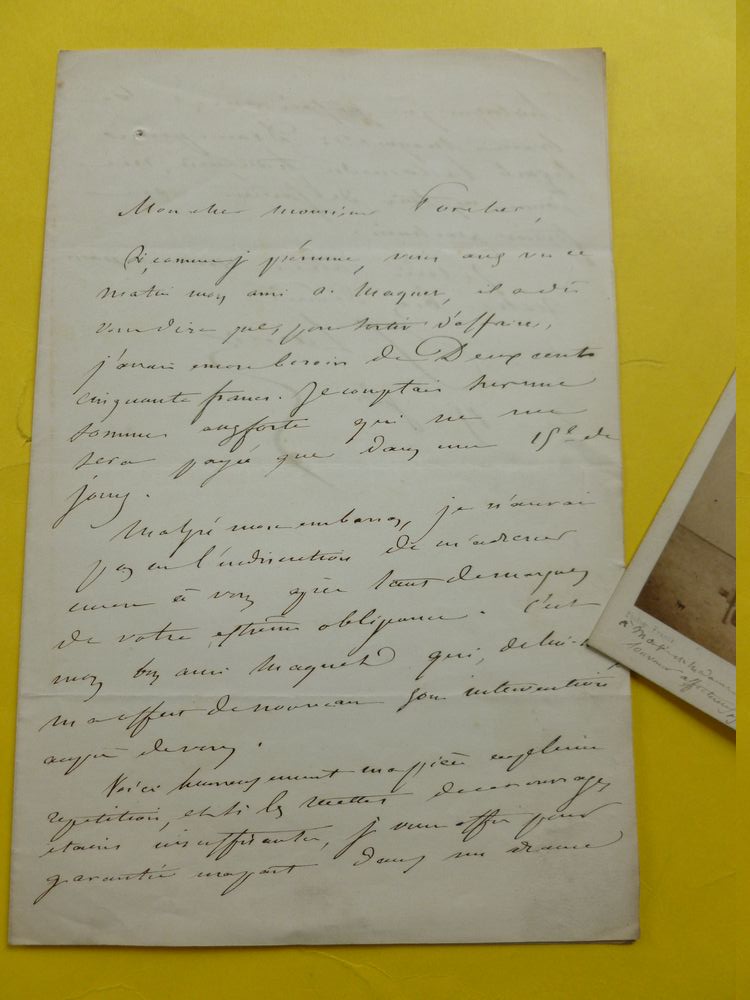 Mon cher monsieur Porcher,
Si, comme je présume, vous avez vu ce
matin mon ami A. Maquet, il a dû
vous dire que, pour sortir d'affaire,
j'avais encore besoin de Deux cents
cinquante francs. Je comptais sur une
somme qui ne me
sera payée que dans une 15e de
jours.
Malgré mon embarras, je n'aurais
pas eu l'indiscrétion de m'adresser
encore à vous après tant de marques
de votre extrême obligeance. C'est
mon bon ami Maquet qui, de lui-
m'a offert de nouveau son intervention
auprès de vous.
Voici heureusement ma pièce en pleine
répétition, et si les recettes de ces ouvrages
étaient insuffisantes, je vous offre pour
garantie ma part dans un drame
à M. et Madame
souvenir affectueux